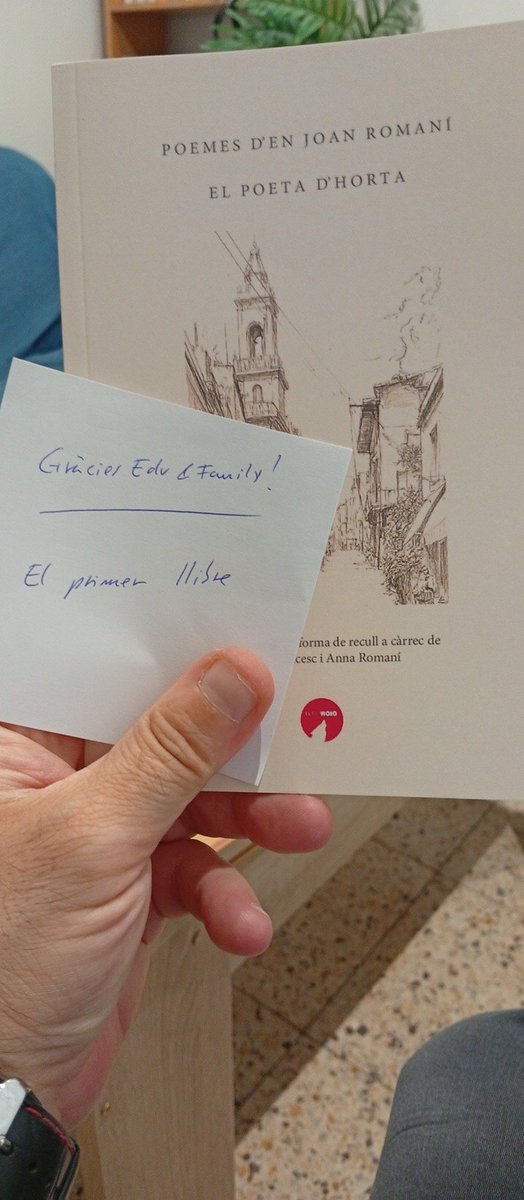 POEMES D'EN JOAN ROMANÍ
EL POETA D'HORTA
Gràcies Edu & Family!
El primer llibre
forma de recull a càrrec de
cesc i Anna Romaní
ROIG